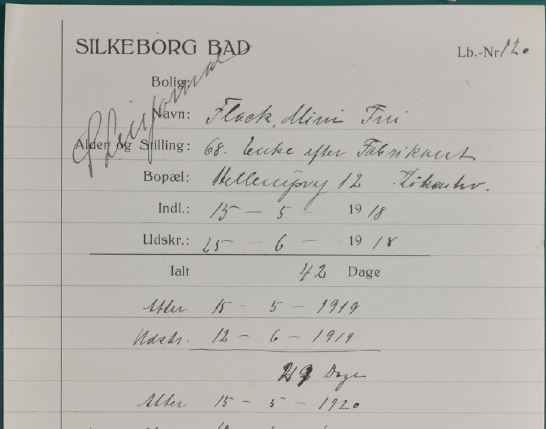 SILKEBORG BAD
Lb.-Nr 120
Bolig:
Navn: Flack, Mimi Fru
Alder og Stilling: 68. Enke efter Fabrikant
Bopæl: Hellerupvej 12
Indl.: 15 – 5 – 1918
Udskr.: 25 – 6 – 1918
Ialt 42 Dage
Atter 15 – 5 – 1919
Udskr. 12 – 6 – 1919
29 Dage
Atter 15 – 5 – 1920